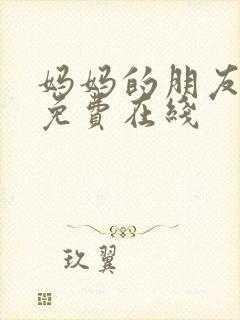 妈妈的朋友
免費在綫
玖翼